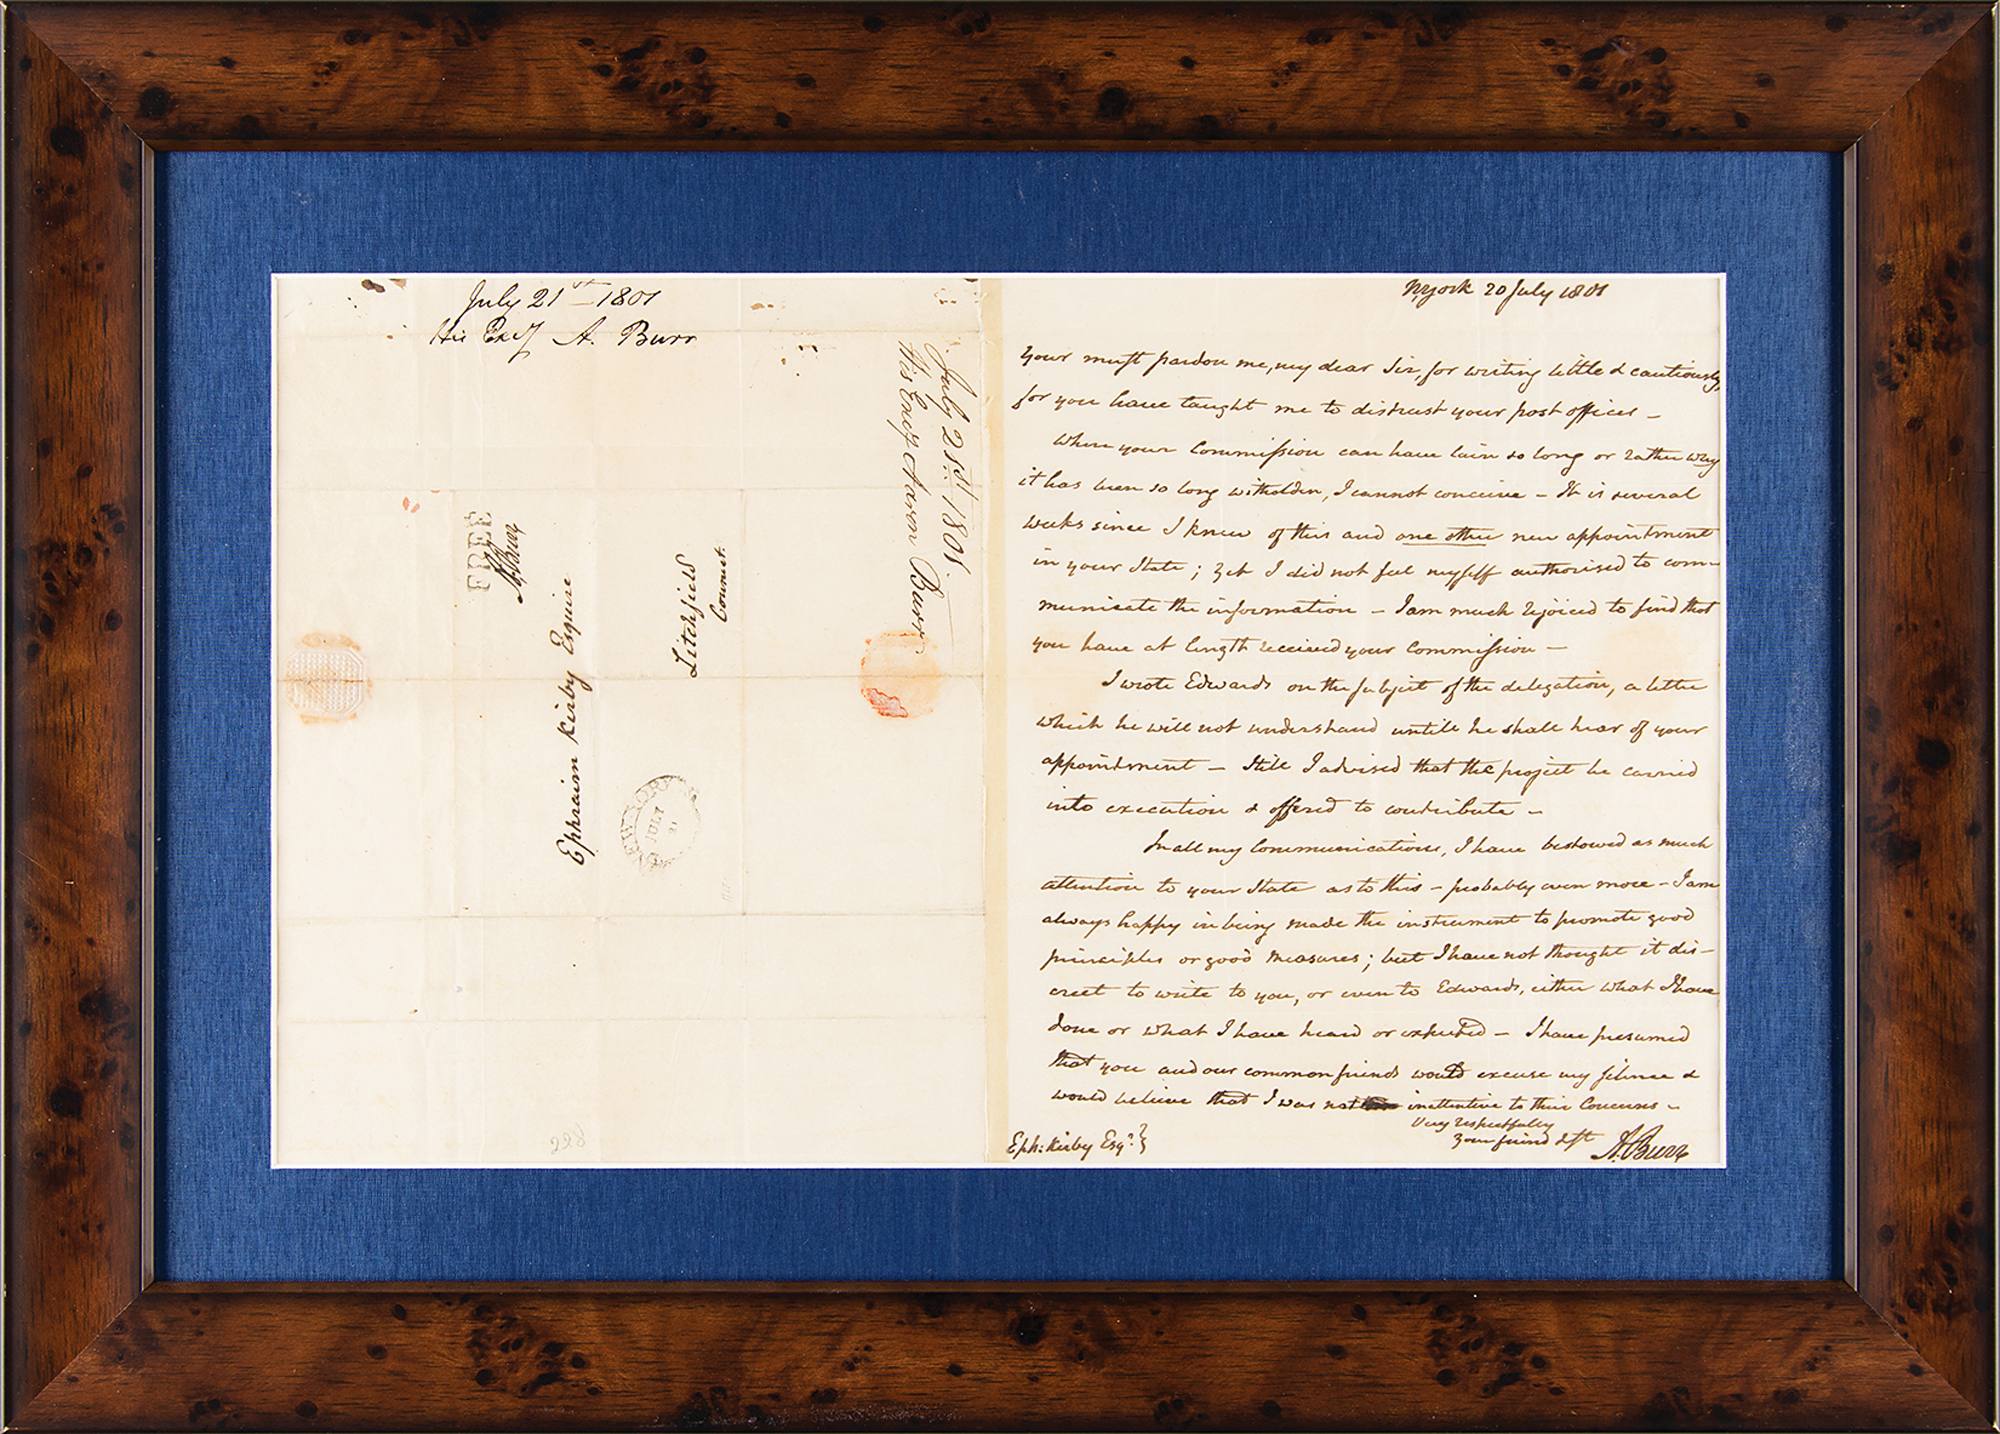 July 21st 1801
His Excy A. Burr
July 21st 1801.
His Excy Aaron Burr
FREE
A Burr
Ephraim Kirby Esquire
Litchfield
Connect.
NEW YORK
JULY
21
228
NYork 20 July 1801
Your must pardon me, my dear Sir, for writing little & cautiously,
for you have taught me to distrust your post offices —
Where your Commission can have lain so long or rather why
it has been so long witholden, I cannot conceive — It is several
weeks since I knew of this and one other new appointment
in your State; yet I did not feel myself authorised to com-
municate the information — I am much rejoiced to find that
you have at length received your Commission —
I wrote Edwards on the subject of the delegation, a letter
which he will not understand untill he shall hear of your
appointment — Still I advised that the project be carried
into execution & offered to contribute —
In all my Communications, I have bestowed as much
attention to your State as to this — probably even more — I am
always happy in being made the instrument to promote good
principles or good measures; but I have not thought it dis-
creet to write to you, or even to Edwards, either what I have
done or what I have heard or expected — I have presumed
that you and our common friends would excuse my silence &
would believe that I was not inattentive to their Concerns —
Very respectfully
Your friend & st
A. Burr
Eph: Kirby Esqr. }